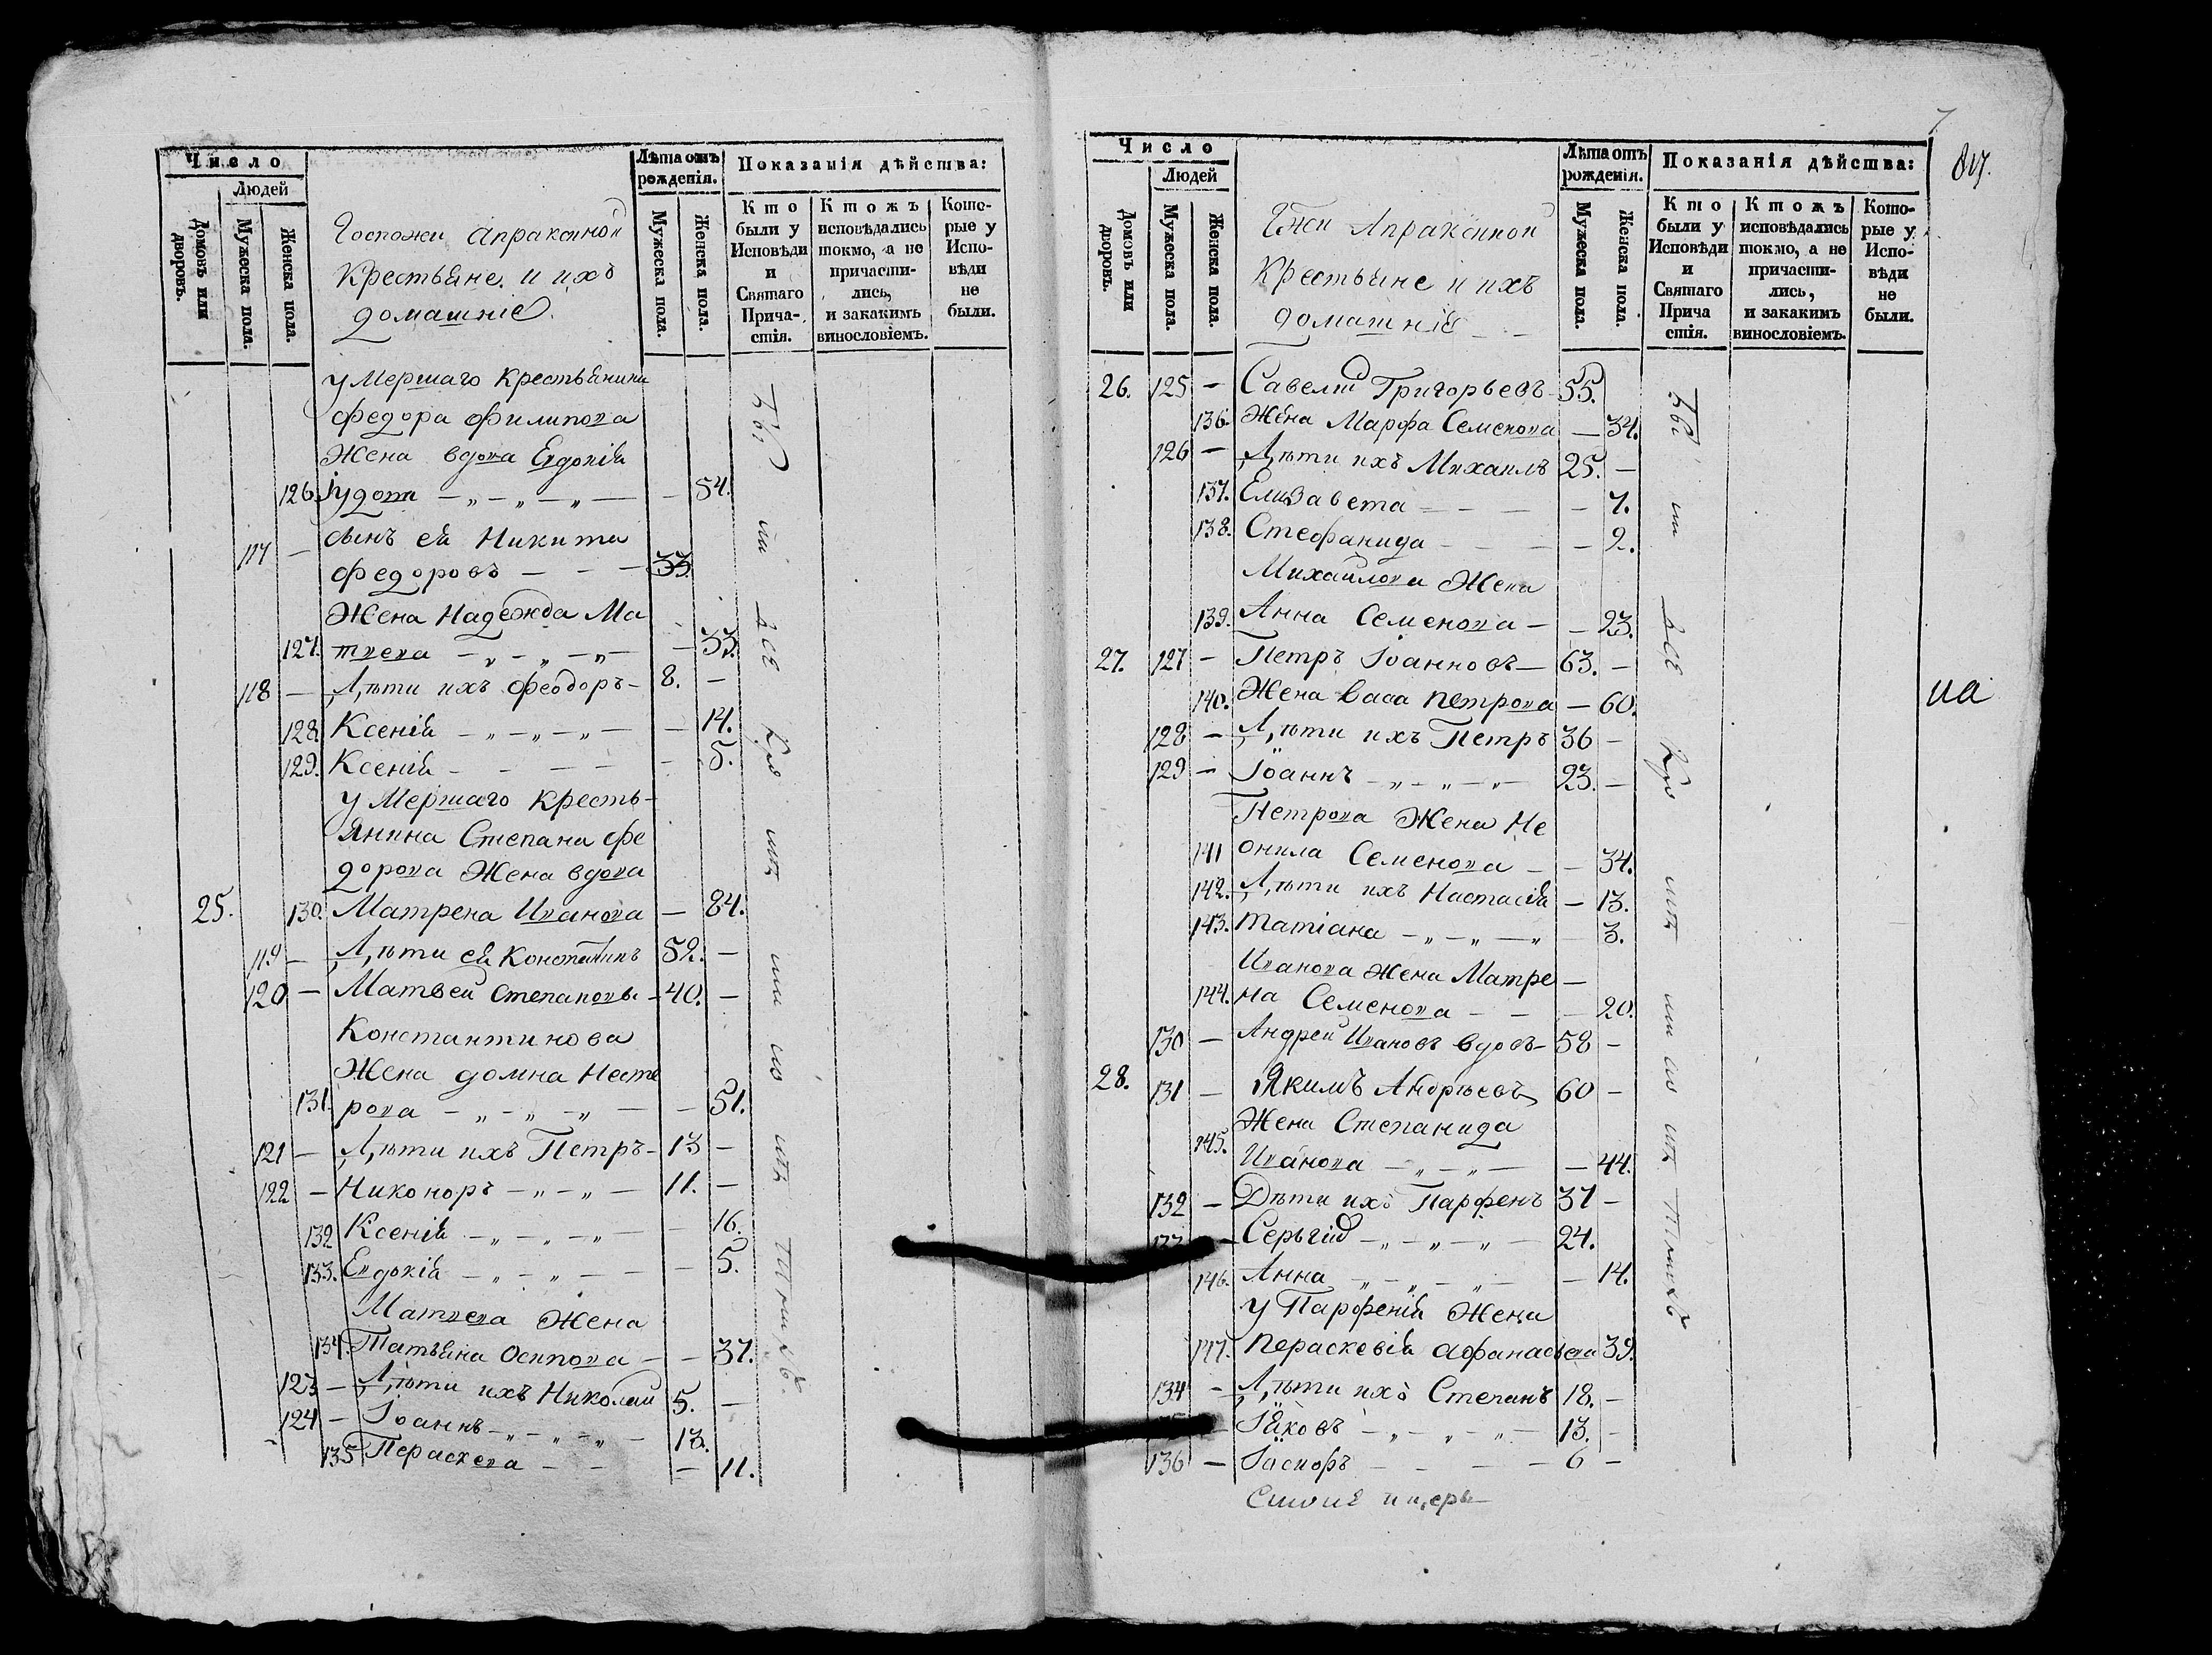 Число
Людей
Домовъ или дворовъ.
Мужеска пола.
Женска пола.
Госпожи Апраксиной
Крестьяне и ихъ
домашніе.
Лѣта отъ рожденія.
Мужеска пола.
Женска пола.
Показанія дѣйства:
Кто были у Исповѣди и Святаго Причастія.
Ктожъ исповѣдались токмо, а не причастились, и закакимъ винословіемъ.
Которые у Исповѣди не были.
умершаго крестьянина
федора филипова
Жена вдова Евдокія
126.
— 54.
117 — сынъ ея Никита
федоровъ — — — 33.
Жена Надежда Ма
127. твева — „ — „ — „ — — 33.
118 — Дѣти ихъ Феодоръ — 8. —
128. Ксенія — „ — „ — „ — — 14.
129. Ксенія — — — — — 5.
умершаго кресть-
янина Степана фе
дорова Жена вдова
25. 130. Матрена Иванова — 84.
119 — Дѣти ея Константинъ 52. —
120 — Матвей Степановы — 40. —
Константинова
Жена домна Несте
131. рова — „ — „ — „ — — 51.
121 — Дѣти ихъ Петръ — 13 —
122 — Никоноръ — „ — „ — 11. —
132 Ксенія — „ — „ — „ — — 16.
133. Евдокія — „ — „ — — — 5.
Матвева Жена
134. Татьяна Осипова — — 37.
123 — Дѣти ихъ Николай 5. —
124 — Іоаннъ — „ — „ — „ — 13.
135 Пераскева — — — 11.
Число
Людей
Домовъ или дворовъ.
Мужеска пола.
Женска пола.
Гжи Апраксиной
Крестьяне и ихъ
домашніе — —
Лѣта отъ рожденія.
Мужеска пола.
Женска пола.
Показанія дѣйства:
Кто были у Исповѣди и Святаго Прича стія.
Ктожъ исповѣдались токмо, а не причастились, и закакимъ винословіемъ.
Которые у Исповѣди не были.
26. 125 — Савелій Григорьевъ 55.
136. Жена Марфа Семенова — 34.
126 — Дѣти ихъ Михаилъ 25. —
137. Елизавета — — — — 7.
138. Стефанида — — — — 2.
Михайлова Жена
139. Анна Семенова — — 23.
27. 127 — Петръ Іоанновъ — 63. —
140. Жена Васа петрова — 60.
128 — Дѣти ихъ Петръ 36 —
129 — Іоаннъ — „ — „ — „ — 23. —
Петрова Жена Не
141 онила Семенова — — 34.
142. Дѣти ихъ Настасія — 13.
143. Татіана — „ — „ — „ — 3.
Иванова жена Матре —
144. на Семенова — — — 20.
130 — Андрей Ивановъ вдовъ — 58 —
28. 131 — Якимъ Андрѣевъ 60 —
Жена Степанида
145. Иванова — „ — „ — — 44.
132 — Дѣти ихъ Парфенъ 37 —
— Сергій — „ — „ — „ — 24.
146. Анна — „ — „ — „ — — 14.
у Парфенія Жена
147. Пераскевія Афанасьева 39.
134 — Дѣти ихъ Степанъ 18. —
— Іаковъ — „ — „ — „ — 13. —
136 — Іосифъ — — — — 6 —